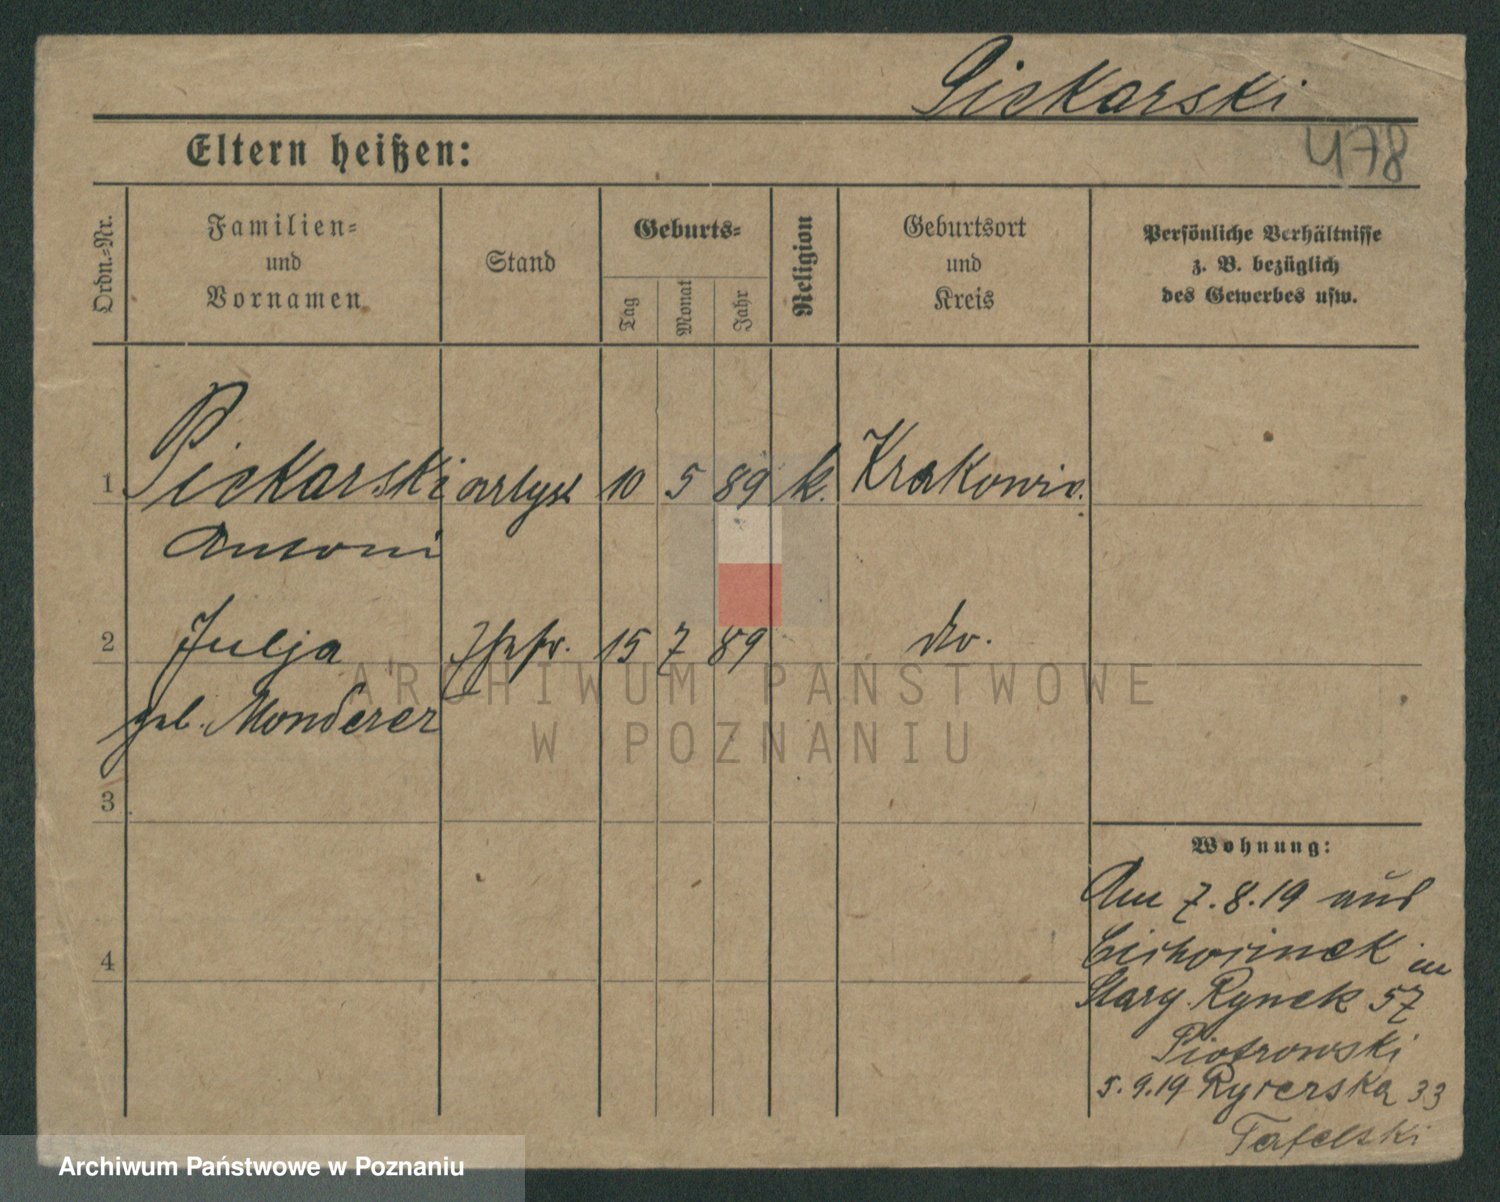 Piekarski
478
Eltern heißen:
Ordn.-Nr.
Familien-
und
Vornamen
Stand
Geburts-
Tag
Monat
Jahr
Religion
Geburtsort
und
Kreis
Persönliche Verhältnisse
z. B. bezüglich
des Gewerbes usw.
1 Piekarski artyst 10 5 89 k. Krakowie.
Antoni
2 Julja 15 7 89 do.
geb. Monderer
3
4
Wohnung:
Am 7.8.19 aus
Ciechocinek in
Stary Rynek 57
Piotrowski
5.9.19 Rycerska 33
Tafelski
ARCHIWUM PAŃSTWOWE
W POZNANIU
Archiwum Państwowe w Poznaniu